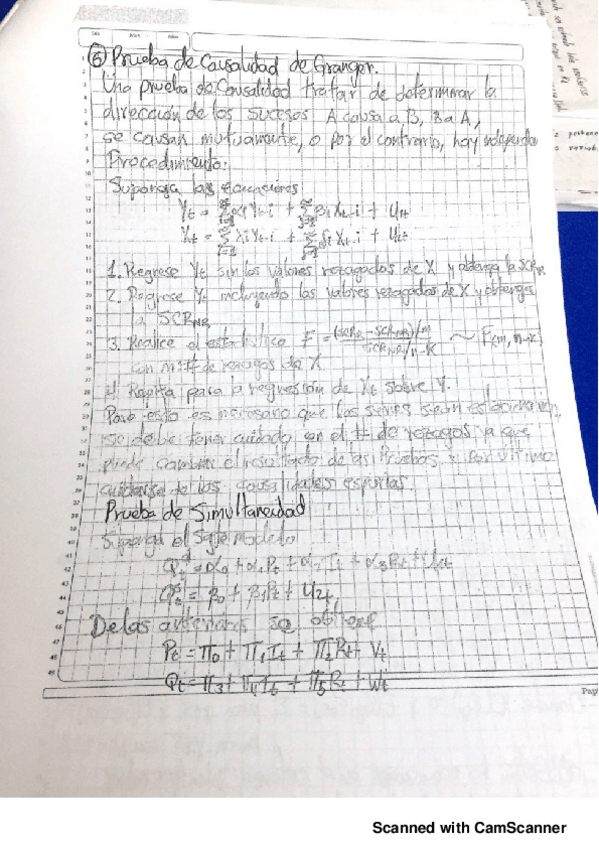 ⑥ Prueba de Causalidad de Granger.
Una prueba de Causalidad tratar de determinar la
dirección de los sucesos A causa a B, B a A,
se causan mutuamente, o por el contrario, hay
Procedimiento:
Suponga las ecuaciones
Yt = Σ αi Yt-i + Σ βi Xt-i + U1t
Xt = Σ λi Yt-i + Σ δi Xt-i + U2t
1. Regrese Yt sin los valores rezagados de X y obtenga la SCRR
2. Regrese Yt incluyendo los valores rezagados de X y obtenga
la SCRNR
3. Realice el estadístico F = (SCRR - SCRNR)/m / SCRNR/n-K ~ F(m, n-k)
con m: # de rezagos de X
4) Repita para la regresión de Xt sobre Y.
Para esto es necesario que las series sean
se debe tener cuidado con el # de rezagos ya que
puede cambiar el resultado de las Pruebas y por último
cuidarse de las causalidades espurias.
Prueba de Simultaneidad
Suponga el Sgte modelo
Qt^d = α0 + α1Pt + α2It + α3Rt + U1t
Qt^s = β0 + β1Pt + U2t
De las anteriores se obtiene
Pt = Π0 + Π1It + Π2Rt + Vt
Qt = Π3 + Π4It + Π5Rt + Wt
Pag
Scanned with CamScanner